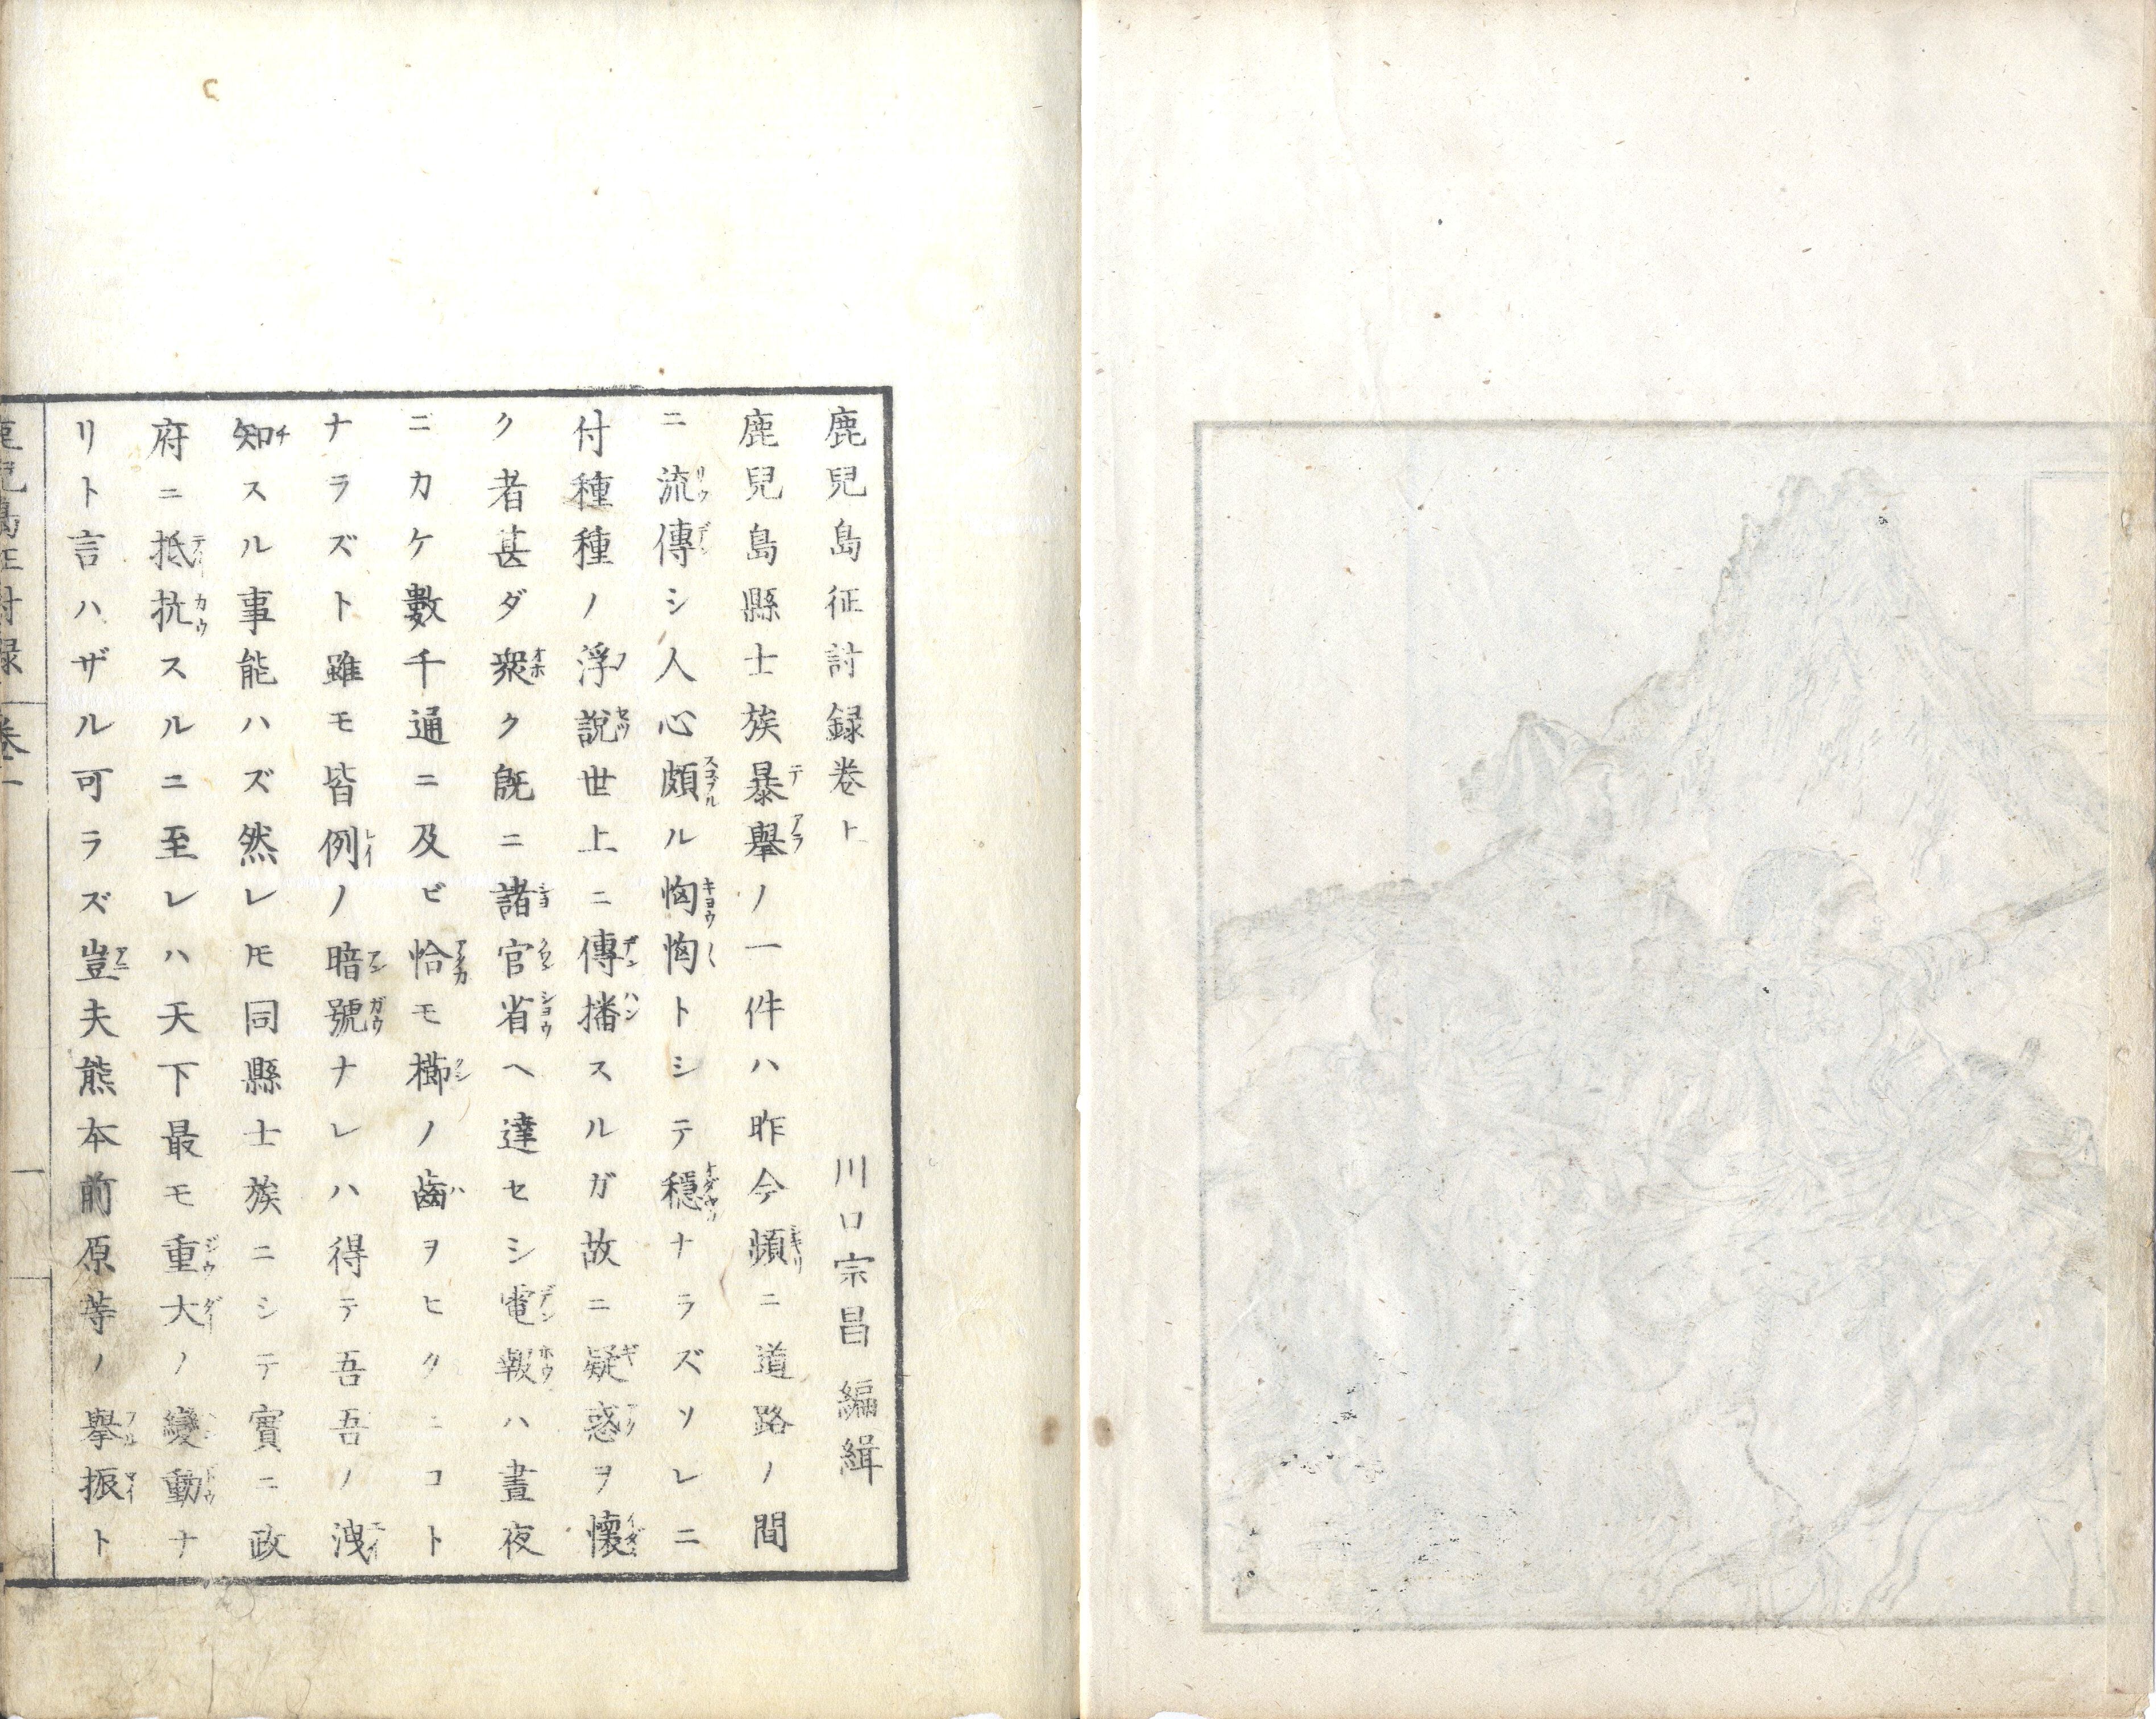 鹿兒島征討録卷上
川口宗昌 編緝
鹿兒島縣士族暴擧ノ一件ハ昨今頻ニ道路ノ間
ニ流傳シ人心頗ル恟恟トシテ穩ナラズソレニ
付種種ノ浮說世上ニ傳播スルガ故ニ疑惑ヲ懷
ク者甚ダ衆ク旣ニ諸官省ヘ達セシ電報ハ晝夜
ニカケ數千通ニ及ビ恰モ櫛ノ齒ヲヒクニコト
ナラズト雖モ皆例ノ暗號ナレハ得テ吾吾ノ洩
知スル事能ハズ然レ𪜈同縣士族ニシテ實ニ政
府ニ抵抗スルニ至レハ天下最モ重大ノ變動ナ
リト言ハザル可ラズ豈夫熊本前原等ノ擧振ト
鹿兒島征討録 卷上 一